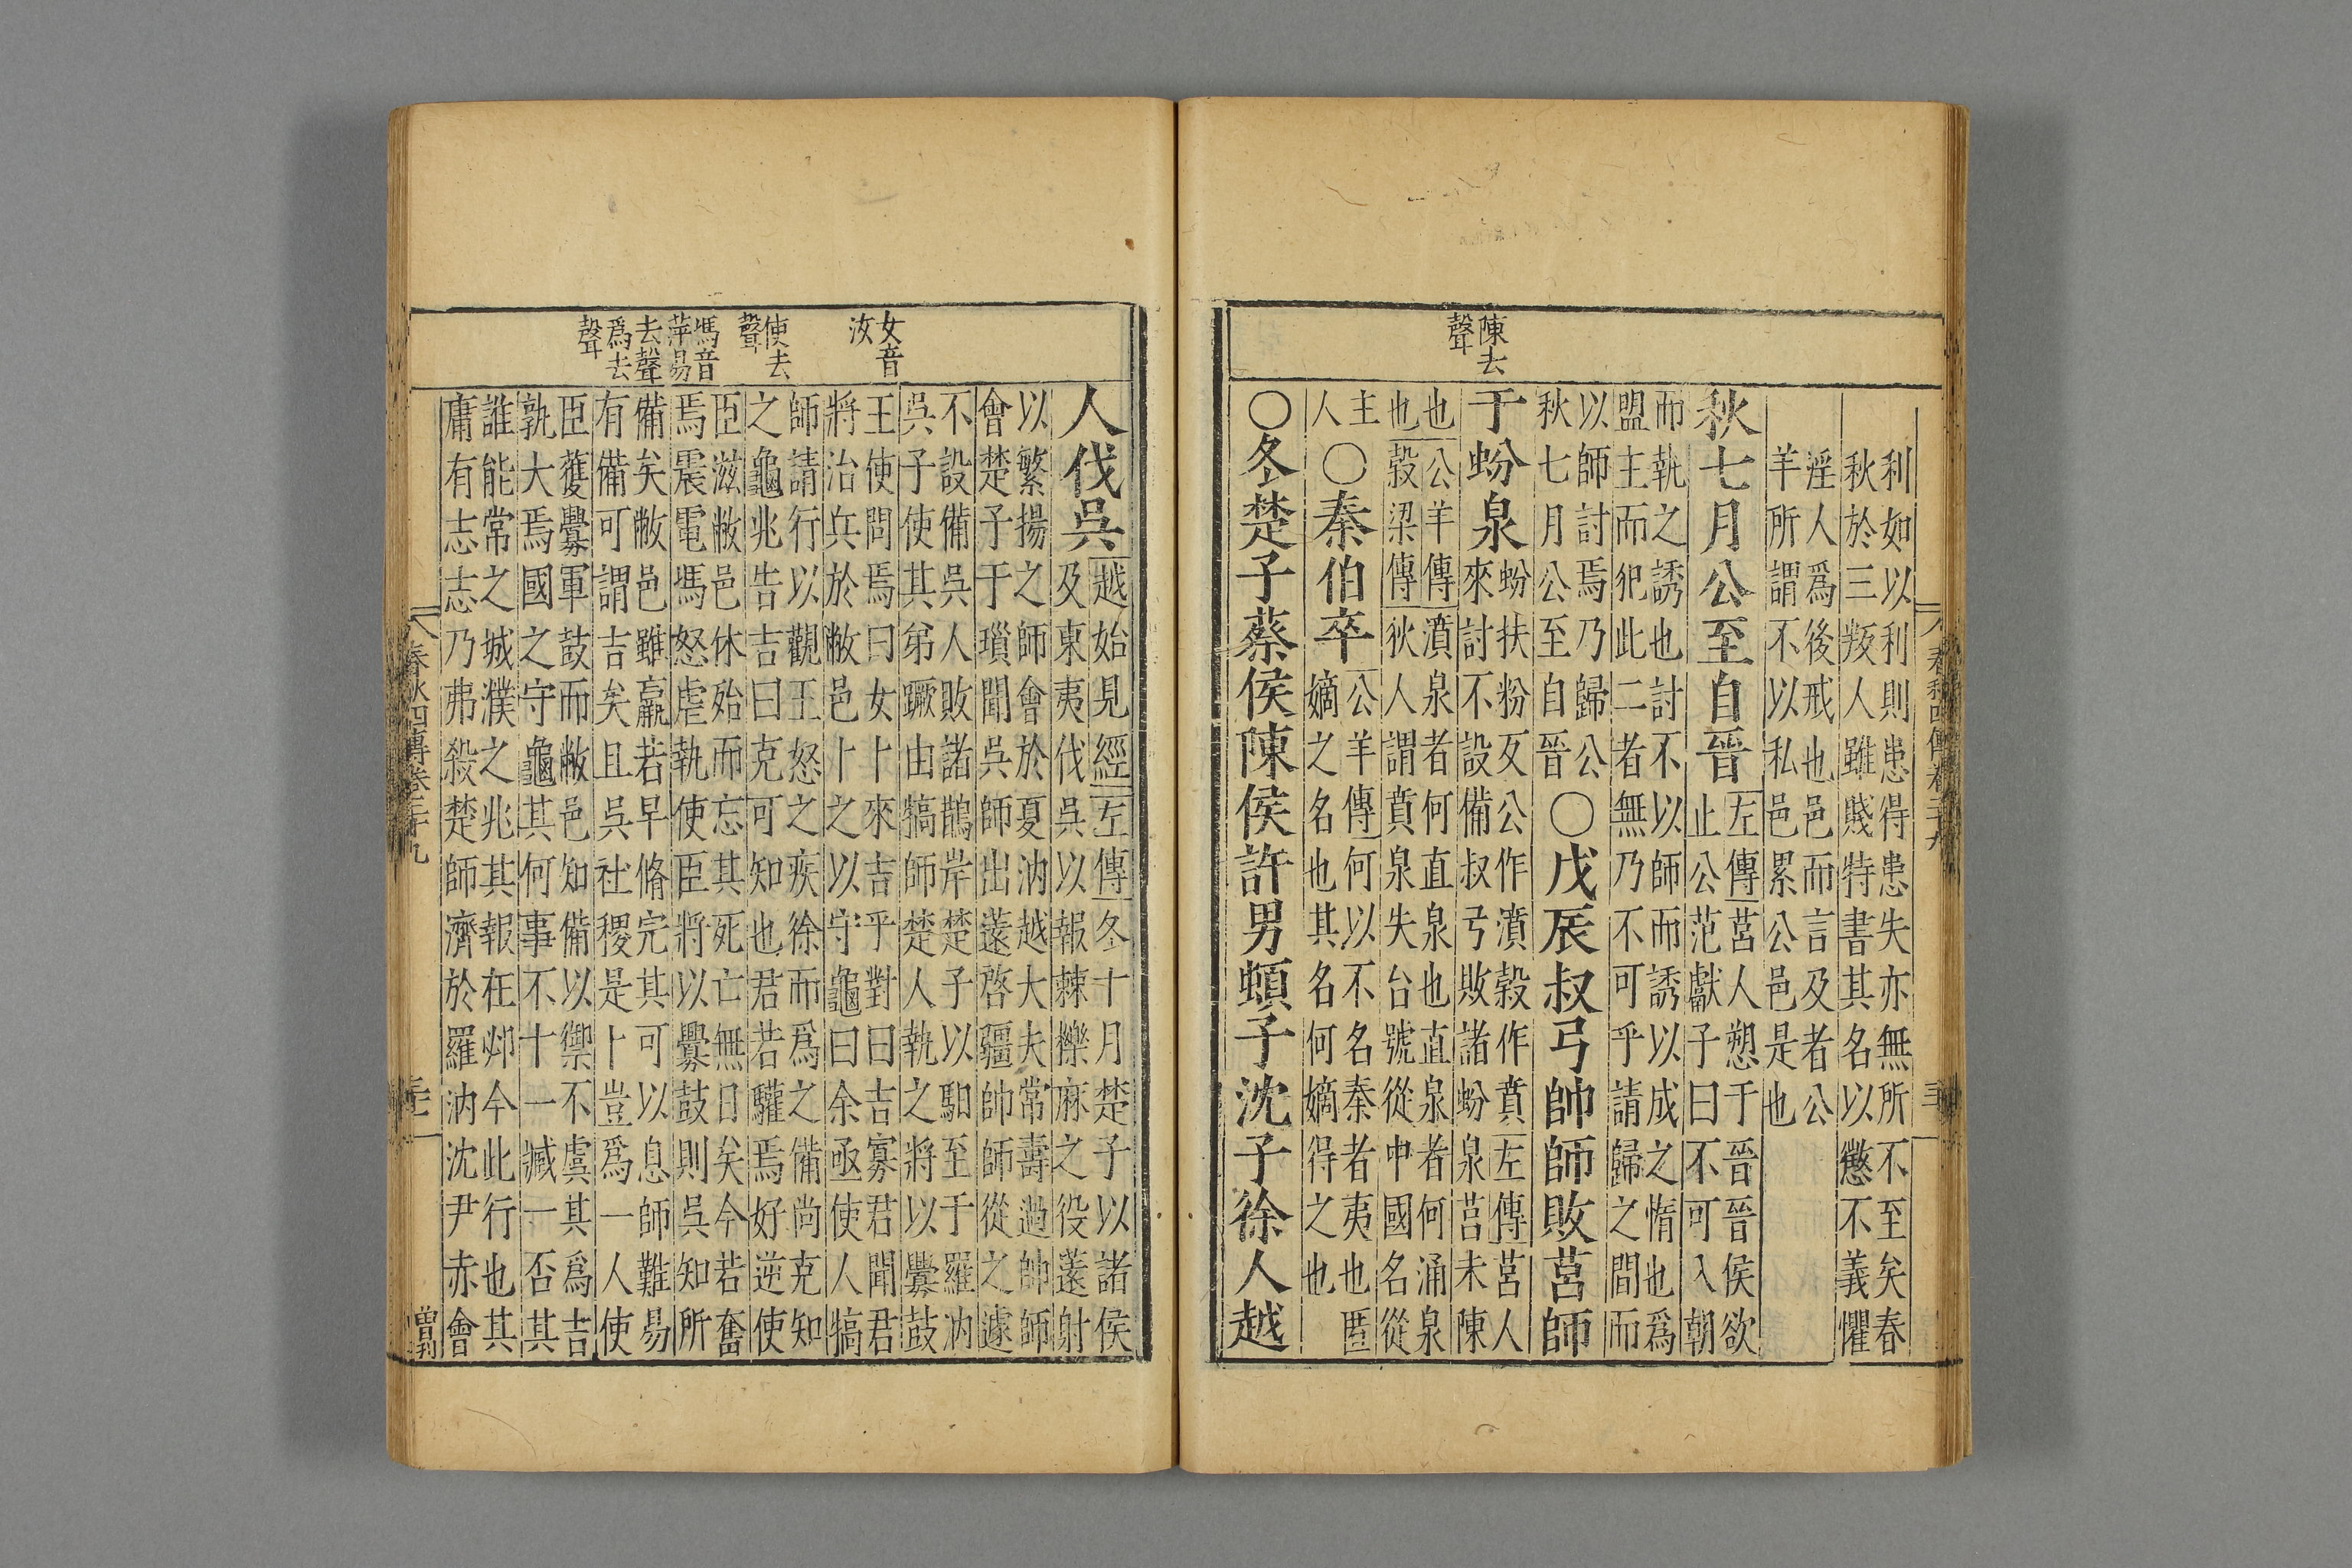 春秋四傳卷二十九
三十一
陳去
聲
利如以利則患得患失亦無所不至矣春
秋於三叛人雖賤特書其名以懲不義懼
淫人爲後戒也邑而言及者公
羊所謂不以私邑累公邑是也
秋七月公至自晉
左傳莒人愬于晉晉侯欲
止公范獻子曰不可入朝
而執之誘也討不以師而誘以成之惰也爲
盟主而犯此二者無乃不可乎請歸之間而
以師討焉乃歸公
秋七月公至自晉
○戊辰叔弓帥師敗莒師
于蚡泉
蚡扶粉反公作濆穀作賁左傳莒人
來討不設備叔弓敗諸蚡泉莒未陳
也公羊傳濆泉者何直泉也直泉者何涌泉
也穀梁傳狄人謂賁泉失台號從中國名從
主
人
○秦伯卒
公羊傳何以不名秦者夷也匿
嫡之名也其名何嫡得之也
○冬楚子蔡侯陳侯許男頓子沈子徐人越
女音
汝
使去
聲
馮音
苹易
去聲
爲去
聲
人伐吳
越始見經左傳冬十月楚子以諸侯
及東夷伐吳以報棘櫟麻之役薳射
以繁揚之師會於夏汭越大夫常壽過帥師
會楚子于瑣聞吳師出薳啓疆帥師從之遽
不設備吳人敗諸鵲岸楚子以馹至于羅汭
吳子使其弟蹶由犒師楚人執之將以釁鼓
王使問焉曰女卜來吉乎對曰吉寡君聞君
將治兵於敝邑卜之以守龜曰余亟使人犒
師請行以觀王怒之疾徐而爲之備尚克知
之龜兆告吉曰克可知也君若驩焉好逆使
臣滋敝邑休殆而忘其死亡無日矣今若奮
焉震電馮怒虐執使臣將以釁鼓則吳知所
備矣敝邑雖羸若早脩完其可以息師難易
有備可謂吉矣且吳社稷是卜豈爲一人使
臣獲釁軍鼓而敝邑知備以禦不虞其爲吉
孰大焉國之守龜其何事不卜一臧一否其
誰能常之城濮之兆其報在邲今此行也其
庸有志志乃弗殺楚師濟於羅汭沈尹赤會
春秋四傳卷二十九
曾刋